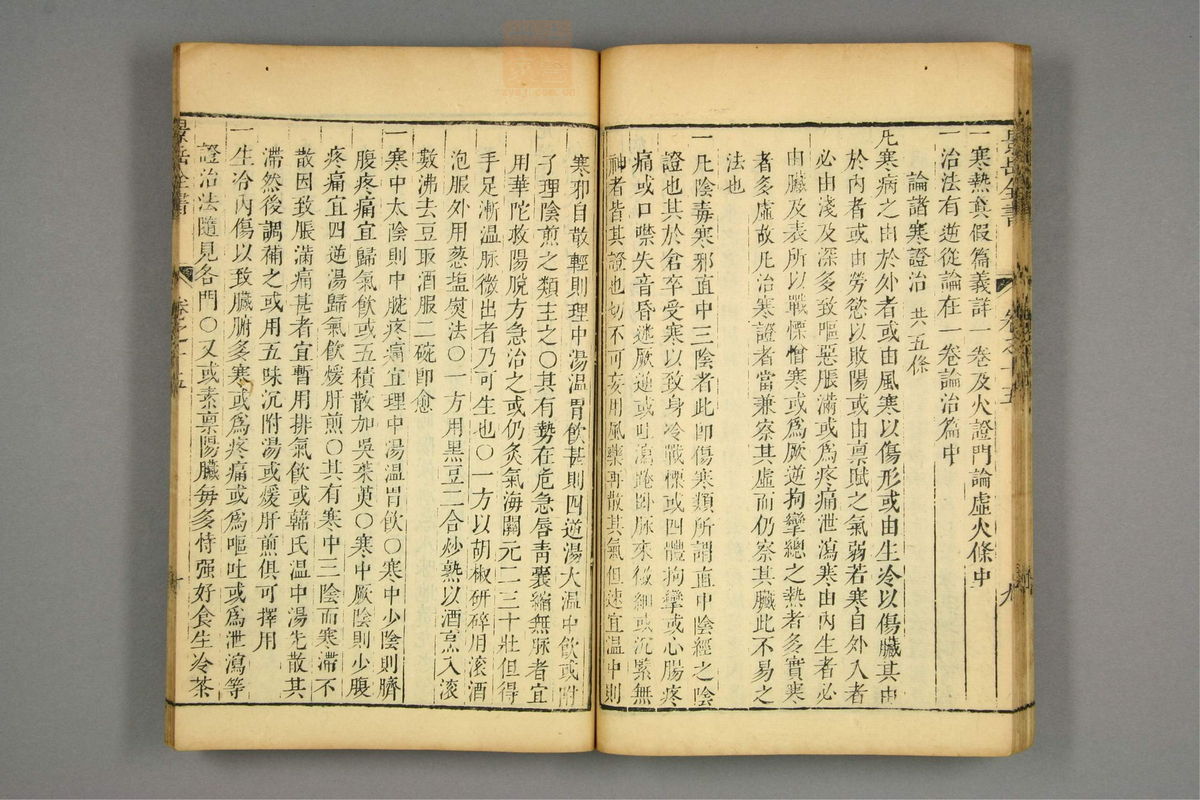 一寒熱真假篇義詳一卷及火證門論虛火條中
一治法有逆從論在一卷論治篇中
論諸寒證治 共五條
凡寒病之由於外者或由風寒以傷形或由生冷以傷臟其由
於內者或由勞慾以敗陽或由禀賦之氣弱若寒自外入者
必由淺及深多致嘔惡脹滿或爲疼痛泄瀉寒由內生者必
由臟及表所以戰慄憎寒或爲厥逆拘攣總之熱者多實寒
者多虛故凡治寒證者當兼察其虛而仍察其臟此不易之
法也
一凡陰毒寒邪直中三陰者此卽傷寒類所謂直中陰經之陰
證也其於倉卒受寒以致身冷戰慄或四體拘攣或心腸疼
痛或口噤失音昏迷厥逆或吐瀉踡卧脉來微細或沉緊無
神者皆其證也切不可妄用風藥再散其氣但速宜温中則
景岳全書 卷之十五 九
寒邪自散輕則理中湯温胃飲甚則四逆湯大温中飲或附
子理陰煎之類主之○其有勢在危急唇青囊縮無脉者宜
用華陀救陽脫方急治之或仍灸氣海關元二三十壯但得
手足漸温脉微出者乃可生也○一方以胡椒研碎用滾酒
泡服外用葱塩熨法○一方用黑豆二合炒熟以酒烹入滾
數沸去豆取酒服二碗卽愈
一寒中太陰則中脘疼痛宜理中湯温胃飲○寒中少陰則臍
腹疼痛宜歸氣飲或五積散加吳茱萸○寒中厥陰則少腹
疼痛宜四逆湯歸氣飲煖肝煎○其有寒中三陰而寒滯不
散因致脹滿痛甚者宜暫用排氣飲或韓氏温中湯先散其
滯然後調補之或用五味沉附湯或煖肝煎俱可擇用
一生冷內傷以致臟腑多寒或爲疼痛或爲嘔吐或爲泄瀉等
證治法隨見各門○又或素禀陽臟每多恃强好食生冷茶
景岳全書 卷之十五